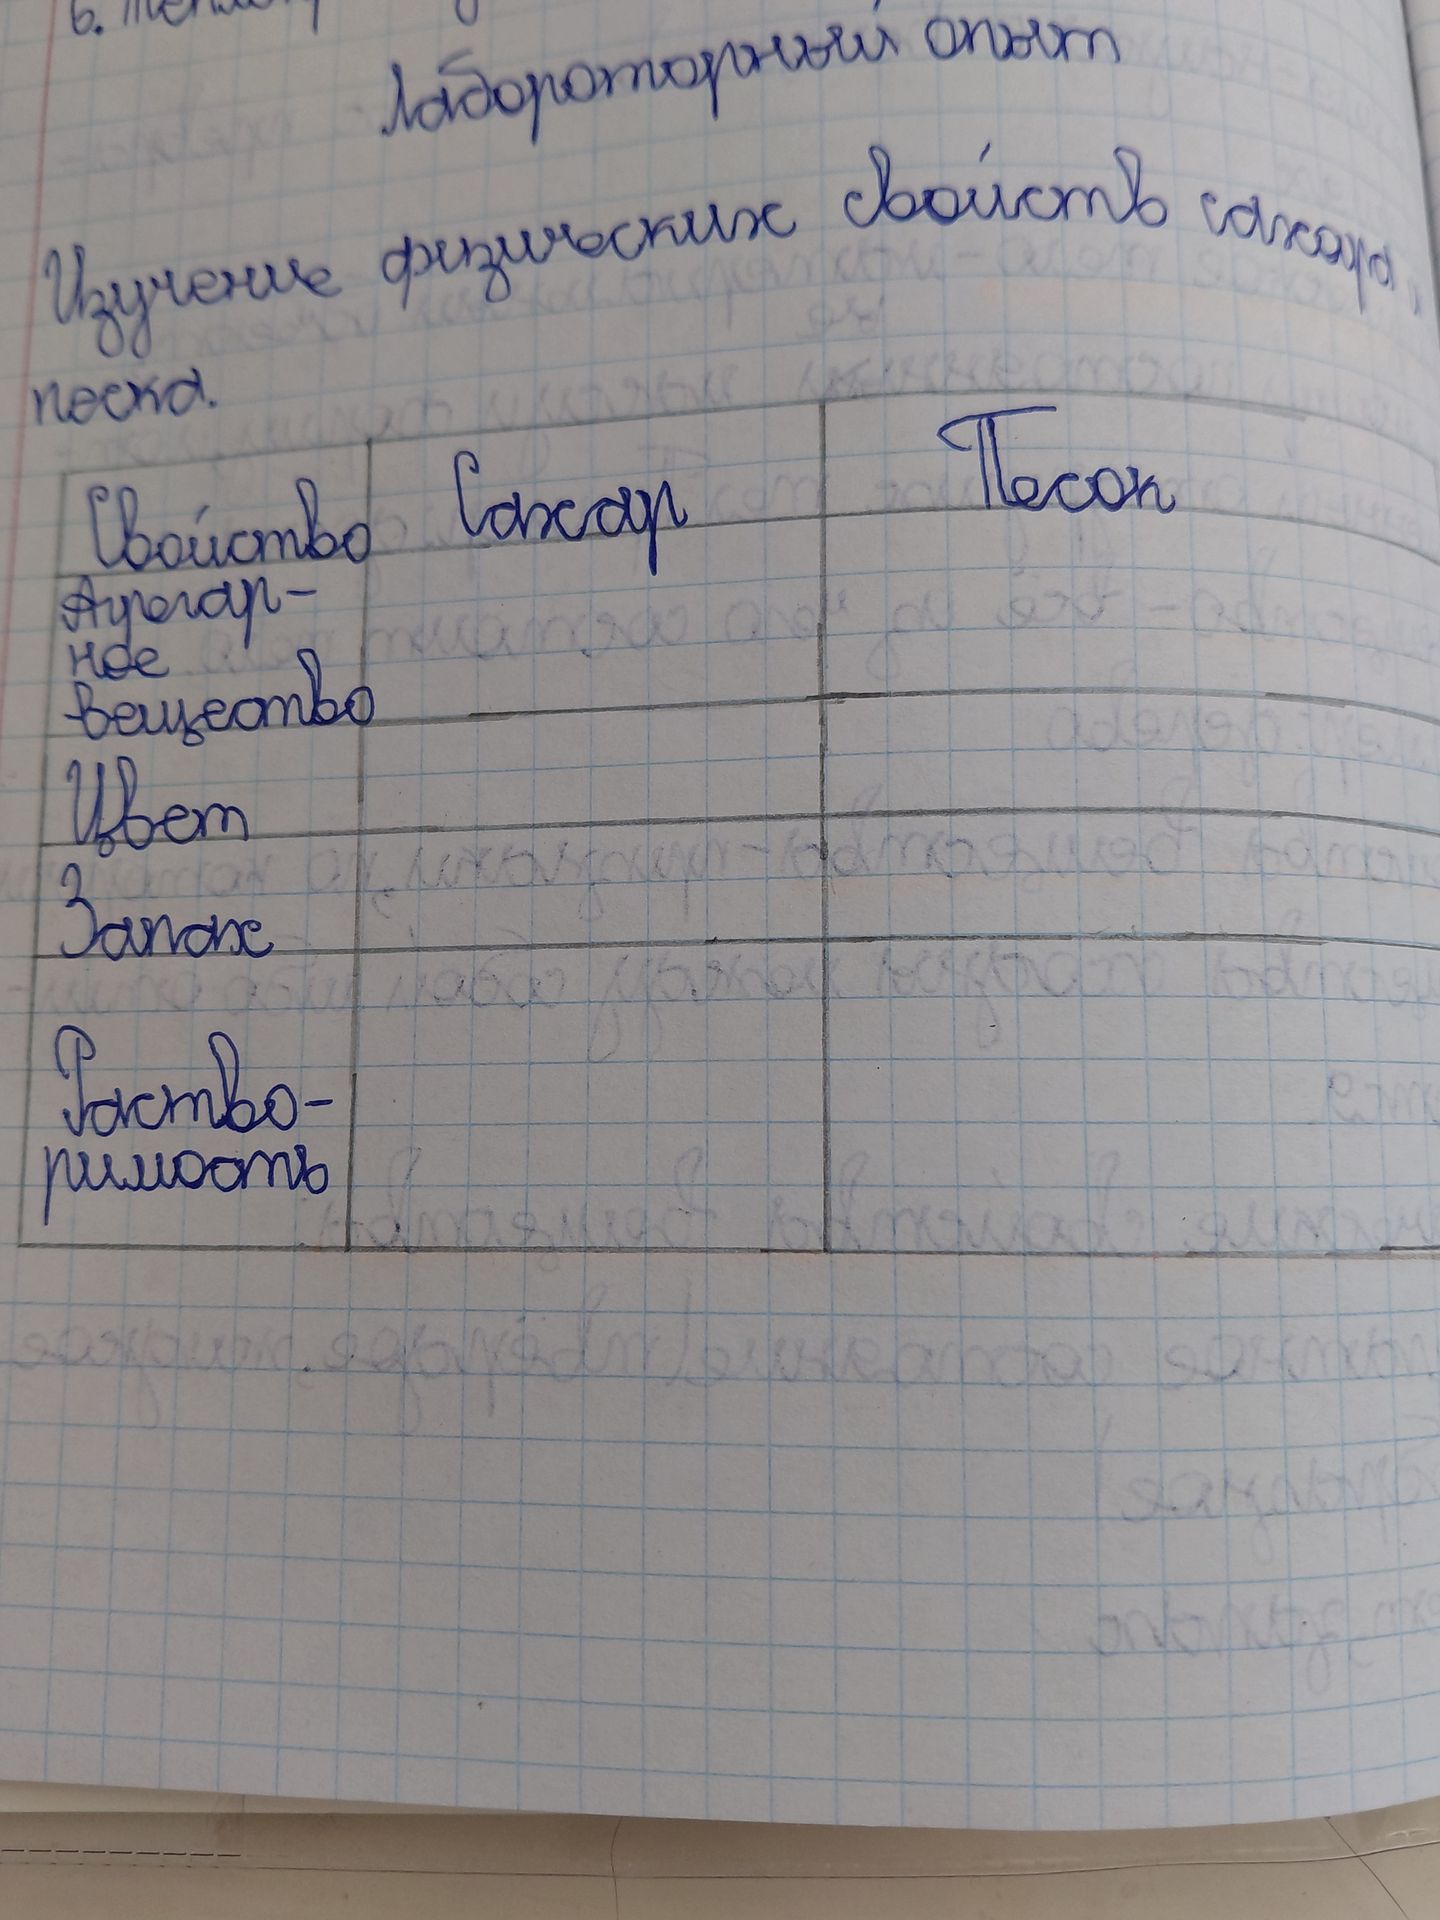 6.
Лабороторный опыт
Изучение физических свойств сахара,
песка.
Свойство Сахар Песок
Агрегар-
ное
вещество
Цвет
Запах
Раство-
римость